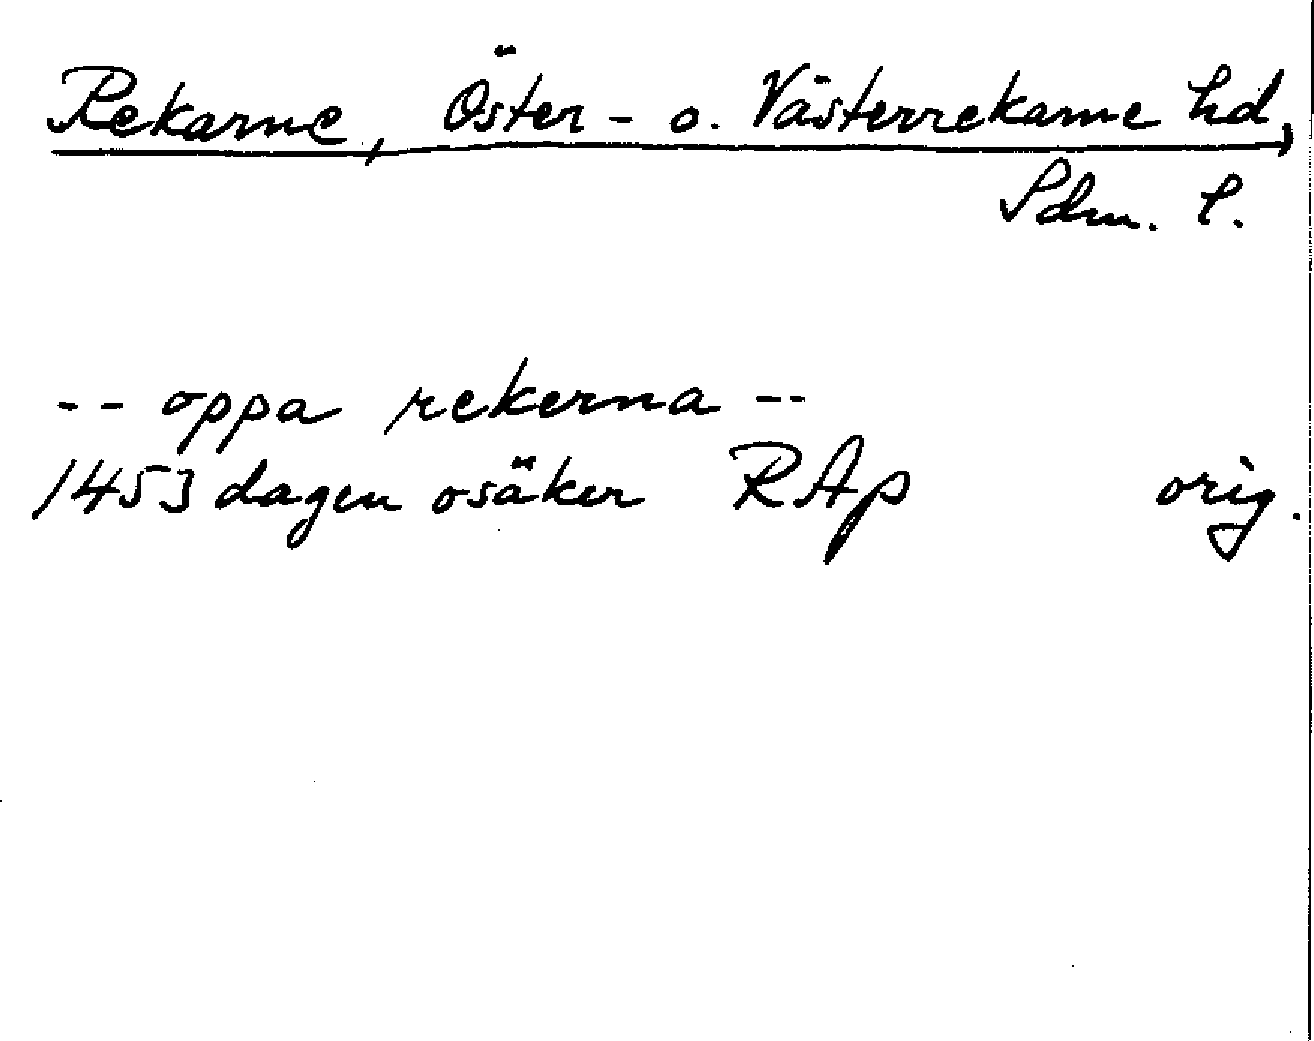 Rekarne, Öster- o. Västerrekarne hd,
Sdm. l.
-- oppa rekerna --
1453 dagen osäker RAp orig.